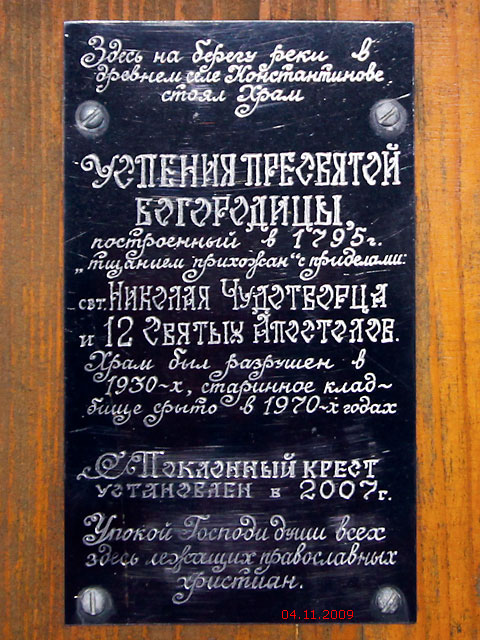 Здесь на берегу реки в
древнем селе Константинове
стоял Храм
УСПЕНИЯ ПРЕСВЯТОЙ
БОГОРОДИЦЫ,
построенный в 1795г.
„тщанием прихожан" с приделами:
свт. Николая Чудотворца
и 12 Святых Апостолов.
Храм был разрушен в
1930-х, старинное клад-
бище срыто в 1970-х годах
Поклонный крест
установлен в 2007г.
Упокой Господи души всех
здесь лежащих православных
христиан.
04.11.2009